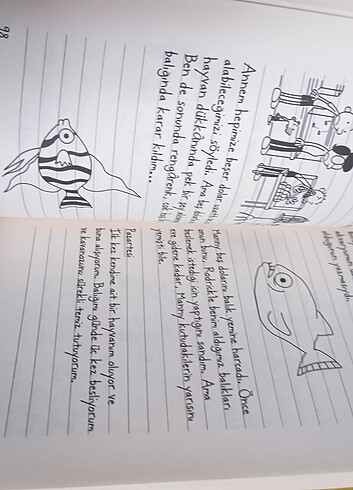 Annem hepimize beşer dolar
alabileceğimizi söyledi. Ama beş dolarla
hayvan dükkânında pek bir şey
Ben de sonunda rengârenk, çok
balığında karar kıldım...
98
akvaryumun
olduğunun yazmasıydı.
Manny beş dolarını balık yemine harcadı. Önce
onun bunu, Rodrick'le benim aldığımız balıkları
beslemek istediği için yaptığını sandım. Ama
eve gidene kadar... Manny kutudakilerin yarısını
yemişti bile.
Pazartesi
İlk kez kendime ait bir hayvanım oluyor ve
buna alışıyorum. Balığımı günde üç kez besliyorum
ve kavanozunu sürekli temiz tutuyorum.